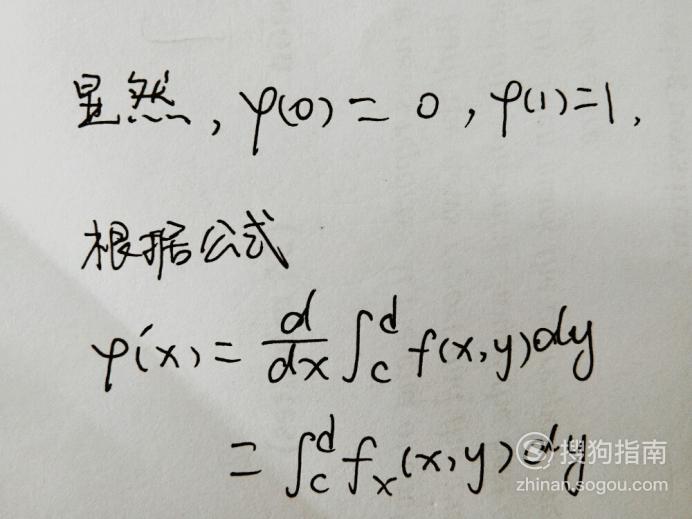 显然, φ(0) = 0, φ(1)=1,
根据公式
φ'(x) = d/dx ∫_c^d f(x,y)dy
= ∫_c^d f_x(x,y)dy
搜狗指南
zhinan.sogou.com